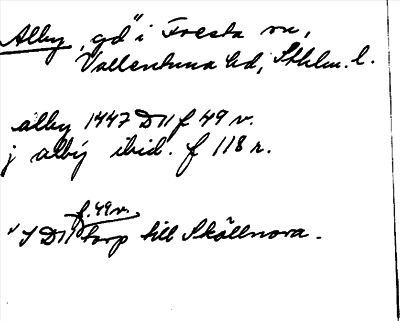 Alby, "gd" i Fresta sn,
Vallentuna hd, Sthlm. l.
alby 1447 D11 f 49 v.
j albẏ ibid. f 118 r.
f. 49 v.
I D11 torp till Skällnora.